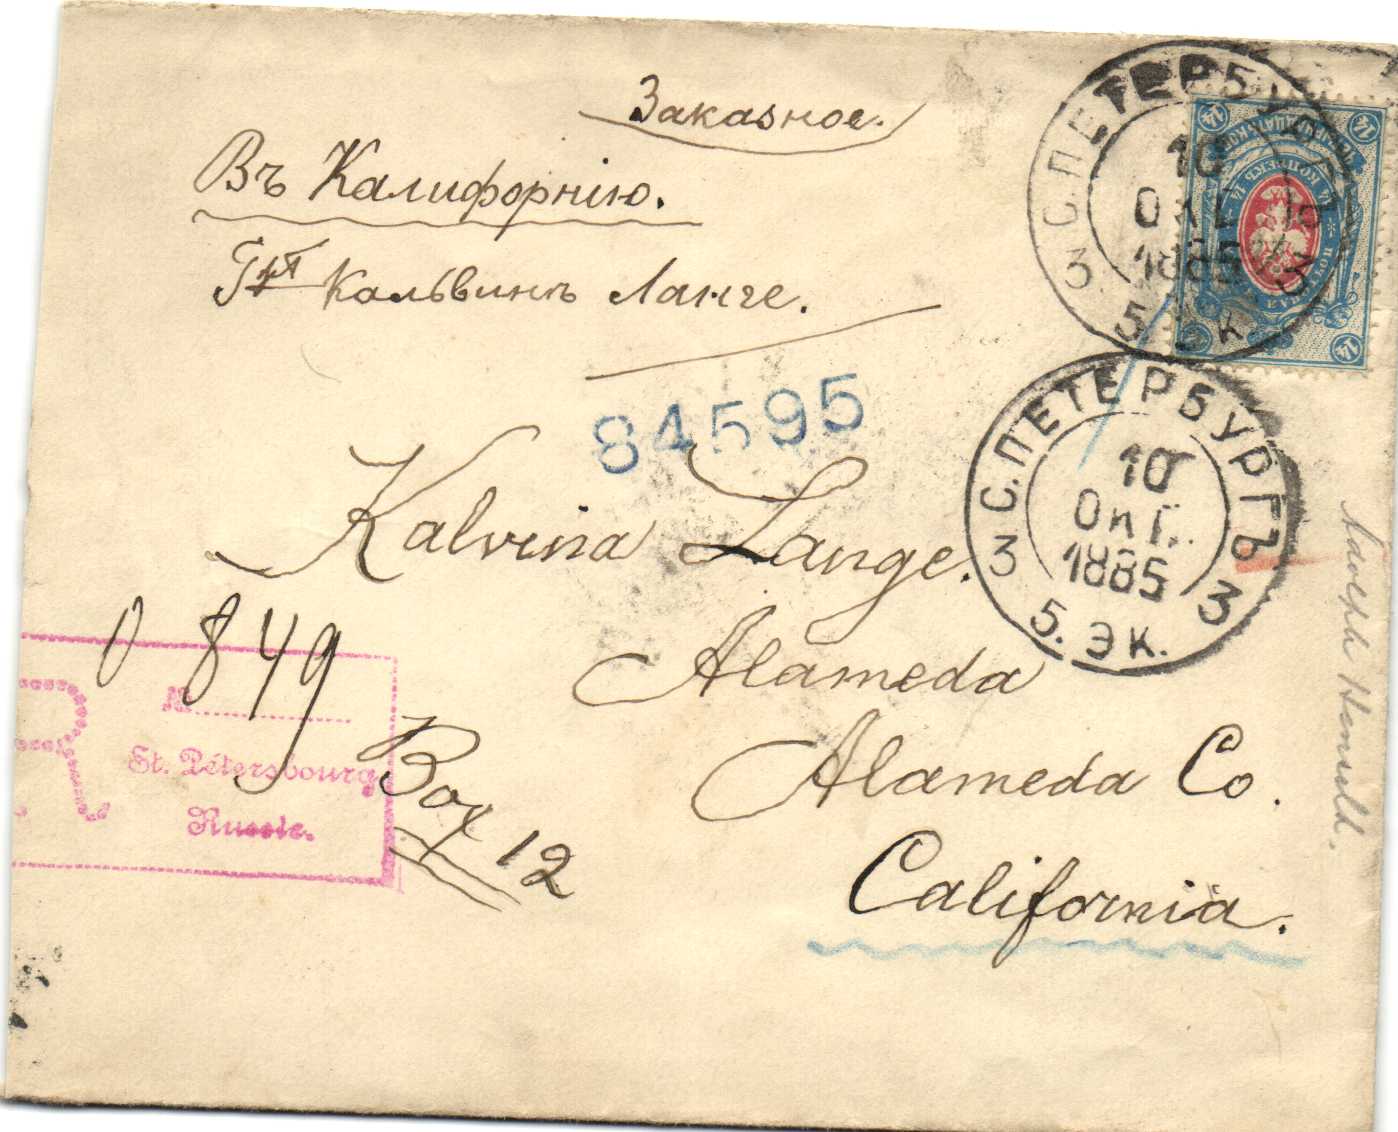 Заказное.
Въ Калифорнію.
Кальвинъ Ланге.
84595
Kalvina Lange.
Alameda
Alameda Co.
California.
Box 12
0 849
R
№
St. Pétersbourg
Russie.
С.ПЕТЕРБУРГЪ
10
ОКТ.
1885
3 5. ЭК. 3
С.ПЕТЕРБУРГЪ
10
ОКТ.
1885
3 5. ЭК. 3
14
14
14
14